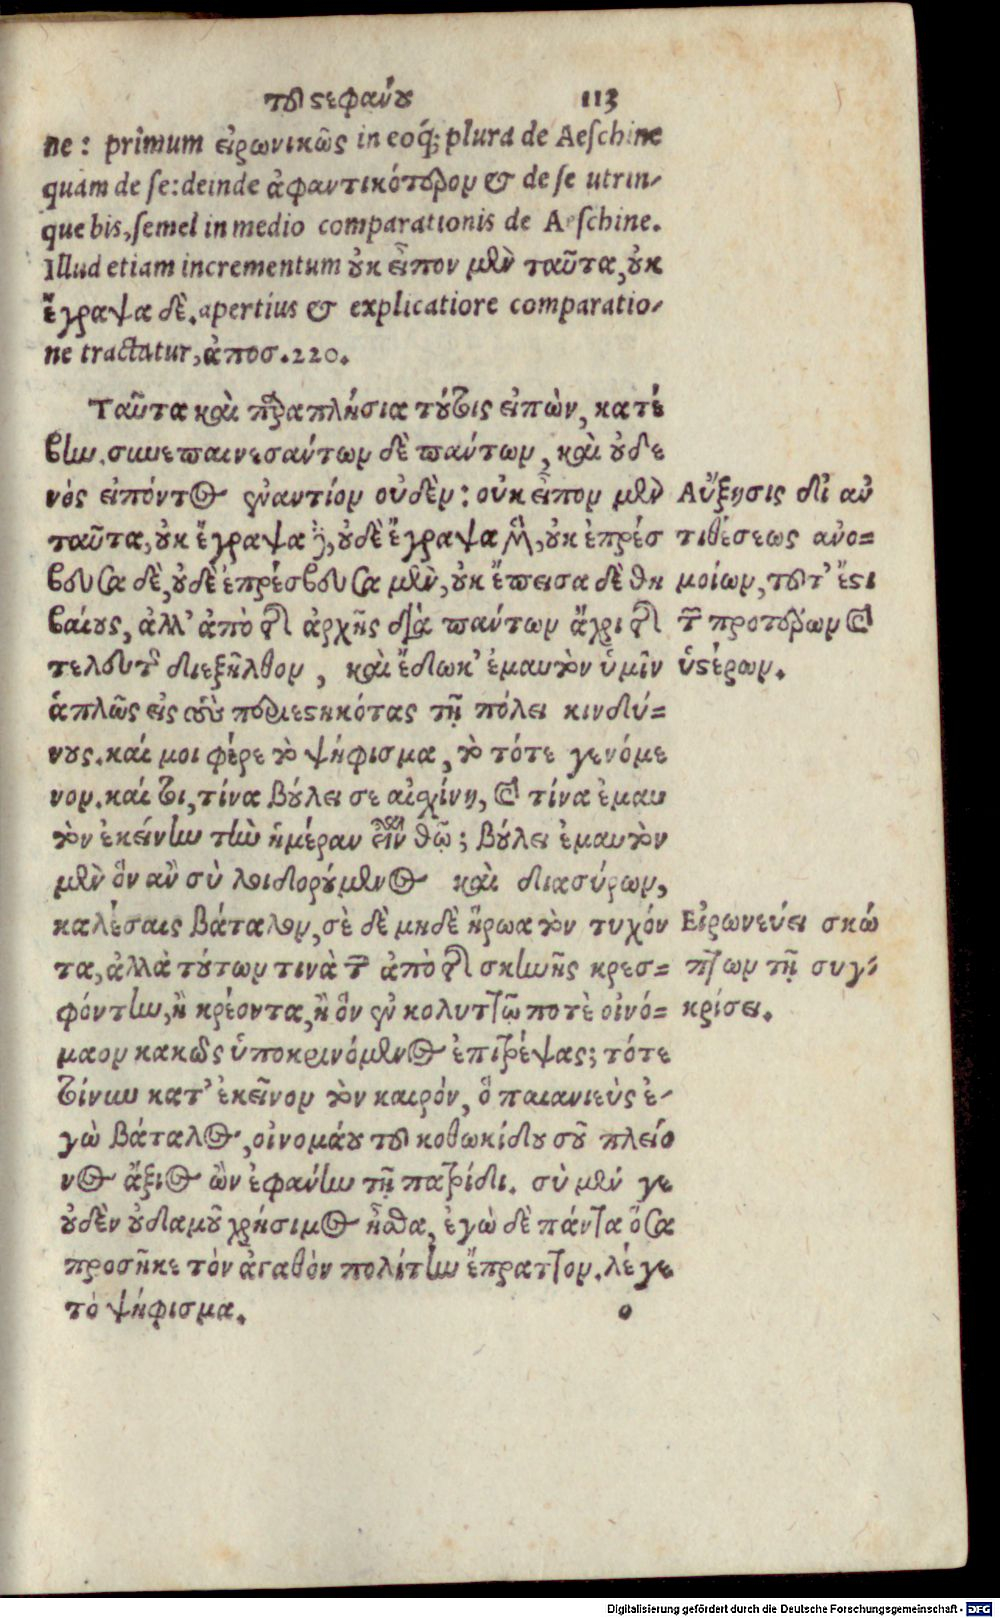 τοῦ στεφάνου 113
ne: primum εἰρωνικῶς in eoq́; plura de Aeſchine
quàm de ſe: deinde ἀφαντικότερον & de ſe utrin-
que bis, ſemel in medio comparationis de Aeſchine.
Illud etiam incrementum οὐκ εἶπον μὲν ταῦτα, οὐκ
ἔγραψα δὲ. apertius & explicatiore comparatio-
ne tractatur, ἀποσ. 220.
Ταῦτα καὶ παραπλήσια τούτοις εἰπὼν, κατέ
βην. συνεπαινεσάντων δὲ πάντων, καὶ οὐδε
νὸς εἰπόντος ἐναντίον οὐδὲν: οὐκ εἶπον μὲν
ταῦτα, οὐκ ἔγραψα δὲ, οὐδὲ ἔγραψα μὲν, οὐκ ἐπρέσ
βευσα δὲ, οὐδὲ ἐπρέσβευσα μὲν, οὐκ ἔπεισα δὲ θη
βαίους, ἀλλ' ἀπὸ τῆς ἀρχῆς διὰ πάντων ἄχρι τῆς
τελευτῆς διεξῆλθον, καὶ ἔδωκ' ἐμαυτὸν ὑμῖν
ἁπλῶς εἰς τοὺς περιεστηκότας τῇ πόλει κινδύ=
νους. καί μοι φέρε τὸ ψήφισμα, τὸ τότε γενόμε
νον. καί τοι, τίνα βούλει σε αἰσχίνη, καὶ τίνα ἐμαυ
τὸν ἐκείνην τὴν ἡμέραν εἶναι θῶ; βούλει ἐμαυτὸν
μὲν ὃν ἂν σὺ λοιδορούμενος καὶ διασύρων,
καλέσαις βάταλον, σὲ δὲ μηδὲ ἥρωα τὸν τυχόν
τα, ἀλλὰ τούτων τινὰ τῶν ἀπὸ τῆς σκηνῆς κρεσ=
φόντην, ἢ κρέοντα, ἢ ὃν ἐν κολυττῷ ποτὲ οἰνό=
μαον κακῶς ὑποκρινόμενος ἐπιτρέψας; τότε
τοίνυν κατ' ἐκεῖνον τὸν καιρόν, ὁ παιανιεὺς ἐ-
γὼ βάταλος, οἰνομάου τοῦ κοθωκίδου σοῦ πλείο
νος ἄξιος ὢν ἐφάνην τῇ πατρίδι. σὺ μέν γε
οὐδὲν οὐδαμοῦ χρήσιμος ἦσθα, ἐγὼ δὲ πάντα ὅσα
προσῆκε τὸν ἀγαθὸν πολίτην ἔπραττον. λέγε
τὸ ψήφισμα.
ο
Αὔξησις δι' ἀν
τιθέσεως ἀνο=
μοίων, τουτ' ἔστι
τῶν προτέρων καὶ
ὑστέρων.
Εἰρωνεύει σκώ
πτων τῇ συγ-
κρίσει.
Digitalisierung gefördert durch die Deutsche Forschungsgemeinschaft - DFG